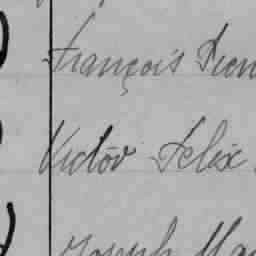 François Pierr
Victor Felix
Joseph Ma